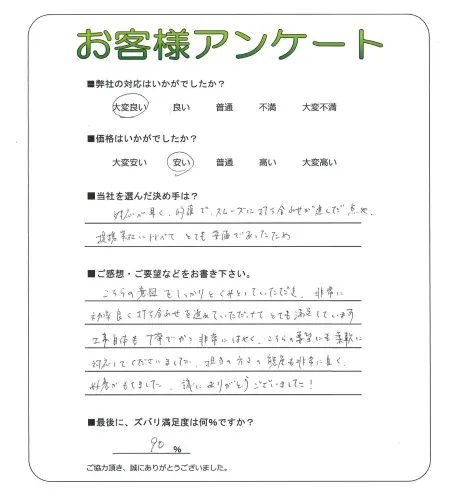 お客様アンケート
■弊社の対応はいかがでしたか？
大変良い 良い 普通 不満 大変不満
■価格はいかがでしたか？
大変安い 安い 普通 高い 大変高い
■当社を選んだ決め手は？
対応が早く、的確で、スムーズに打ち合わせが進んだ点や、
提携業社に比べて とても安価であったため
■ご感想・ご要望などをお書き下さい。
こちらの意図をしっかりとくみとしていただき、非常に
効率良く打ち合わせを進めていただけてとても満足しています
工事自体も丁寧でかつ非常にはやく、こちらの要望にも柔軟に
対応してくださいました。担当の方々の態度も非常に良く、
好感がもてました。誠にありがとうございました！
■最後に、ズバリ満足度は何％ですか？
90 ％
ご協力頂き、誠にありがとうございました。